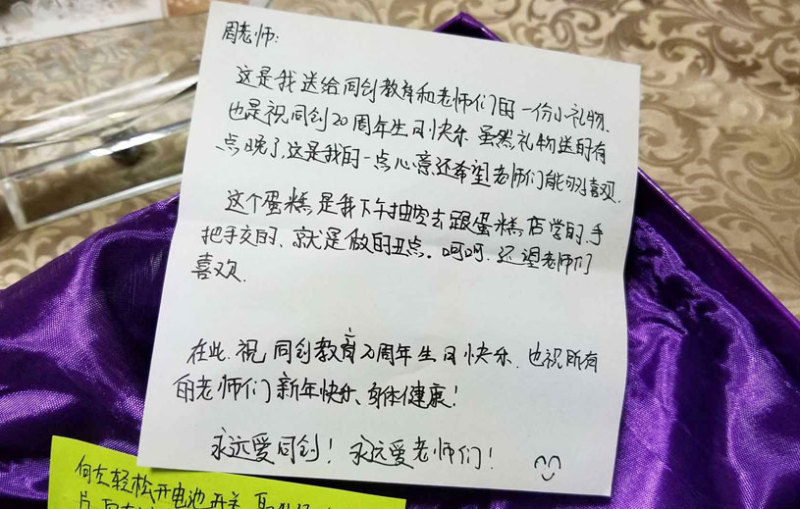 周老师:
这是我送给同创教育和老师们的一份小礼物.
也是祝同创20周年生日快乐 虽然礼物送的有
点晚了,这是我的一点心意,还希望老师们能够喜欢.
这个蛋糕是我下午抽空去跟蛋糕店学的,手
把手交的、就是做的丑点。呵呵.还望老师们
喜欢.
在此.祝同创教育20周年生日快乐.也祝所有
的老师们新年快乐、身体健康!
永远爱同创!永远爱老师们!
轻松开电池开关